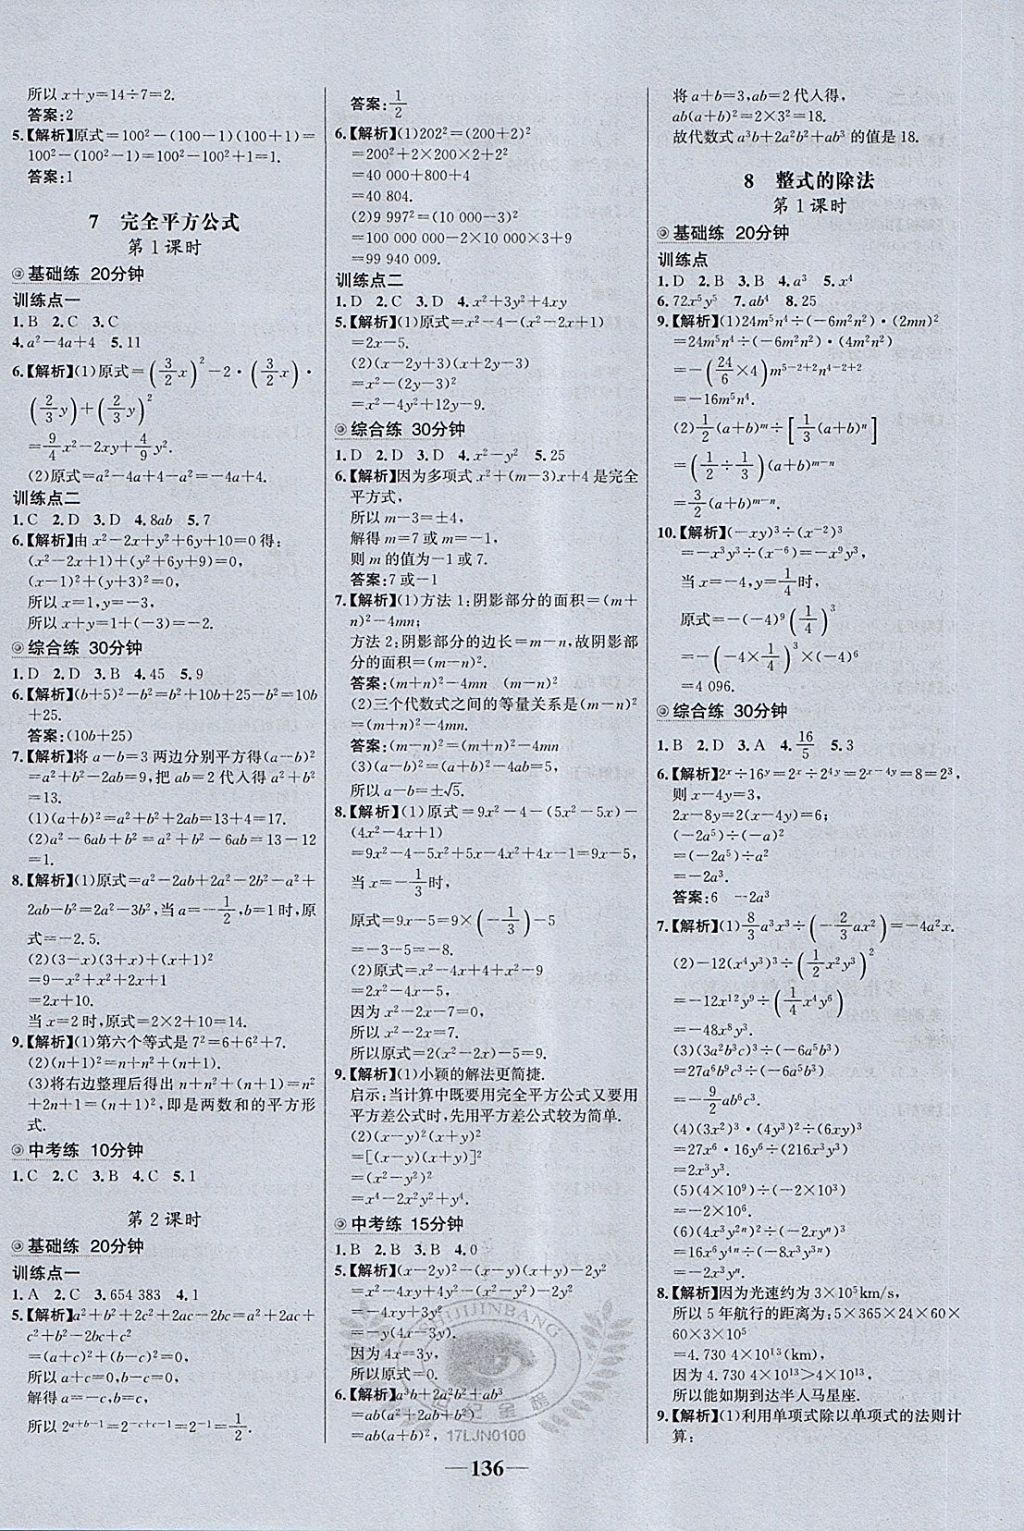 所以 x+y=14÷7=2.
答案:2
5.【解析】原式=100²-(100-1)(100+1)=
100²-(100²-1)=100²-100²+1=1.
答案:1
7 完全平方公式
第1课时
基础练 20分钟
训练点一
1.B 2.C 3.C
4.a²-4a+4 5.11
6.【解析】(1)原式=(3/2 x)²-2·(3/2 x)·
(2/3 y)+(2/3 y)²
=9/4 x²-2xy+4/9 y².
(2)原式=a²-4a+4-a²=-4a+4.
训练点二
1.C 2.D 3.D 4.8ab 5.7
6.【解析】由 x²-2x+y²+6y+10=0得:
(x²-2x+1)+(y²+6y+9)=0,
(x-1)²+(y+3)²=0,
所以 x=1,y=-3,
所以 x+y=1+(-3)=-2.
综合练 30分钟
1.D 2.D 3.B 4.45 5.9
6.【解析】(b+5)²-b²=b²+10b+25-b²=10b
+25.
答案:(10b+25)
7.【解析】将 a-b=3 两边分别平方得(a-b)²
=a²+b²-2ab=9,把 ab=2代入得 a²+b²
=13.
(1)(a+b)²=a²+b²+2ab=13+4=17.
(2)a²-6ab+b²=a²+b²-6ab=13-12
=1.
8.【解析】(1)原式=a²-2ab+2a²-2b²-a²+
2ab-b²=2a²-3b²,当 a=-1/2,b=1时,原
式=-2.5.
(2)(3-x)(3+x)+(x+1)²
=9-x²+x²+2x+1
=2x+10.
当 x=2时,原式=2×2+10=14.
9.【解析】(1)第六个等式是 7²=6+6²+7.
(2)(n+1)²=n+n²+(n+1).
(3)将右边整理后得出 n+n²+(n+1)=n²+
2n+1=(n+1)²,即是两数和的平方形
式.
中考练 10分钟
1.C 2.C 3.B 4.C 5.1
第2课时
基础练 20分钟
训练点一
1.A 2.C 3.654 383 4.1
5.【解析】a²+b²+2c²+2ac-2bc=a²+2ac+
c²+b²-2bc+c²
=(a+c)²+(b-c)²=0,
所以 a+c=0,b-c=0,
解得 a=-c,b=c,
所以 2^(a+b-1)=2^(-c+c-1)=2^(-1)=1/2.
答案:1/2
6.【解析】(1)202²=(200+2)²
=200²+2×200×2+2²
=40 000+800+4
=40 804.
(2)9 997²=(10 000-3)²
=100 000 000-2×10 000×3+3²
=99 940 009.
训练点二
1.D 2.C 3.D 4.x²+3y²+4xy
5.【解析】(1)原式=x²-4-(x²-2x+1)
=2x-5.
(2)(x-2y+3)(x+2y-3)
=x²-(2y-3)²
=x²-4y²+12y-9.
综合练 30分钟
1.D 2.D 3.D 4.x²-y² 5.25
6.【解析】因为多项式 x²+(m-3)x+4是完全
平方式,
所以 m-3=±4,
解得 m=7或 m=-1,
则 m 的值为-1或7.
答案:7或-1
7.【解析】(1)方法1:阴影部分的面积=(m+
n)²-4mn;
方法2:阴影部分的边长=m-n,故阴影部
分的面积=(m-n)².
答案:(m+n)²-4mn (m-n)²
(2)三个代数式之间的等量关系是(m-n)²
=(m+n)²-4mn.
答案:(m-n)²=(m+n)²-4mn
(3)(a-b)²=(a+b)²-4ab=5,
所以 a-b=±√5.
8.【解析】(1)原式=9x²-4-(5x²-5x)-
(4x²-4x+1)
=9x²-4-5x²+5x-4x²+4x-1=9x-5,
当 x=-1/3时,
原式=9x-5=9×(-1/3)-5
=-3-5=-8.
(2)原式=x²-4x+4+x²-4
=2x²-4x,
因为 x²-2x-7=0,
所以 x²-2x=7,
所以原式=2(x²-2x)-5=9.
9.【解析】(1)小颖的解法更简捷.
启示:当计算中既要用完全平方公式又要用
平方差公式时,先用平方差公式较为简单.
(2)(x-y)²(x+y)²
=[(x-y)(x+y)]²
=(x²-y²)²
=x⁴-2x²y²+y⁴.
中考练 15分钟
1.B 2.B 3.B 4.0
5.【解析】(x-2y)²-(x-y)(x+y)-2y²
=x²-4xy+4y²-(x²-y²)-2y²
=-4xy+3y²
=-y(4x-3y).
因为 4x=3y,
所以原式=0.
6.【解析】a³b+2a²b²+ab³
=ab(a²+2ab+b²)
=ab(a+b)²,
将 a+b=3,ab=2代入得,
ab(a+b)²=2×3²=18.
故代数式 a³b+2a²b²+ab³ 的值是18.
8 整式的除法
第1课时
基础练 20分钟
训练点
1.D 2.B 3.B 4.a³ 5.x⁴
6.72x⁵y⁵ 7.ab⁴ 8.25
9.【解析】(1)24m⁵n⁴÷(-6m²n²)·(2mn)²
=24m⁵n⁴÷(-6m²n²)·(4m²n²)
=-(24/6×4)m^(5-2+2)n^(4-2+2)
=-16m⁵n⁴.
(2)1/2(a+b)^m÷[1/3(a+b)^n]
=(1/2÷1/3)(a+b)^(m-n)
=3/2(a+b)^(m-n).
10.【解析】(-xy)³÷(x⁻²)³
=-x³y³÷(x⁻⁶)=-x⁹y³.
当 x=-4,y=1/4时,
原式=-(-4)⁹(1/4)³
=-(-4×1/4)³×(-4)⁶
=4 096.
综合练 30分钟
1.B 2.D 3.A 4.16/5 5.3
6.【解析】2^x÷16^y=2^x÷2^(4y)=2^(x-4y)=8=2³,
则 x-4y=3,
2x-8y=2(x-4y)=6;
(-2a⁵)÷(-a)²
=(-2a⁵)÷a²
=-2a³.
答案:6 -2a³
7.【解析】(1)8/3 a³x³÷(-2/3 ax²)=-4a²x.
(2)-12(x⁴y³)³÷(1/2 x²y³)²
=-12x¹²y⁹÷(1/4 x⁴y⁶)
=-48x⁸y³.
(3)(3a²b³c³)³÷(-6a⁵b³)
=27a⁶b⁹c³÷(-6a⁵b³)
=-9/2 ab⁶c³.
(4)(3x²)³·(4y³)²÷(6xy)³
=27x⁶·16y⁶÷(216x³y³)
=2x³y³.
(5)(4×10⁹)÷(-2×10³)
=-2×10⁶.
(6)(4x³y²ⁿ)²÷(-2xyⁿ)³
=16x⁶y⁴ⁿ÷(-8x³y³ⁿ)
=-2x³yⁿ.
8.【解析】因为光速约为 3×10⁵km/s,
所以5年航行的距离为:5×365×24×60×
60×3×10⁵
=4.730 4×10¹³(km),
因为 4.730 4×10¹³>4×10¹³,
所以能如期到达半人马星座.
9.【解析】(1)利用单项式除以单项式的法则计
算:
SHIJINBANG
世纪金榜
17LJN0100
—136—